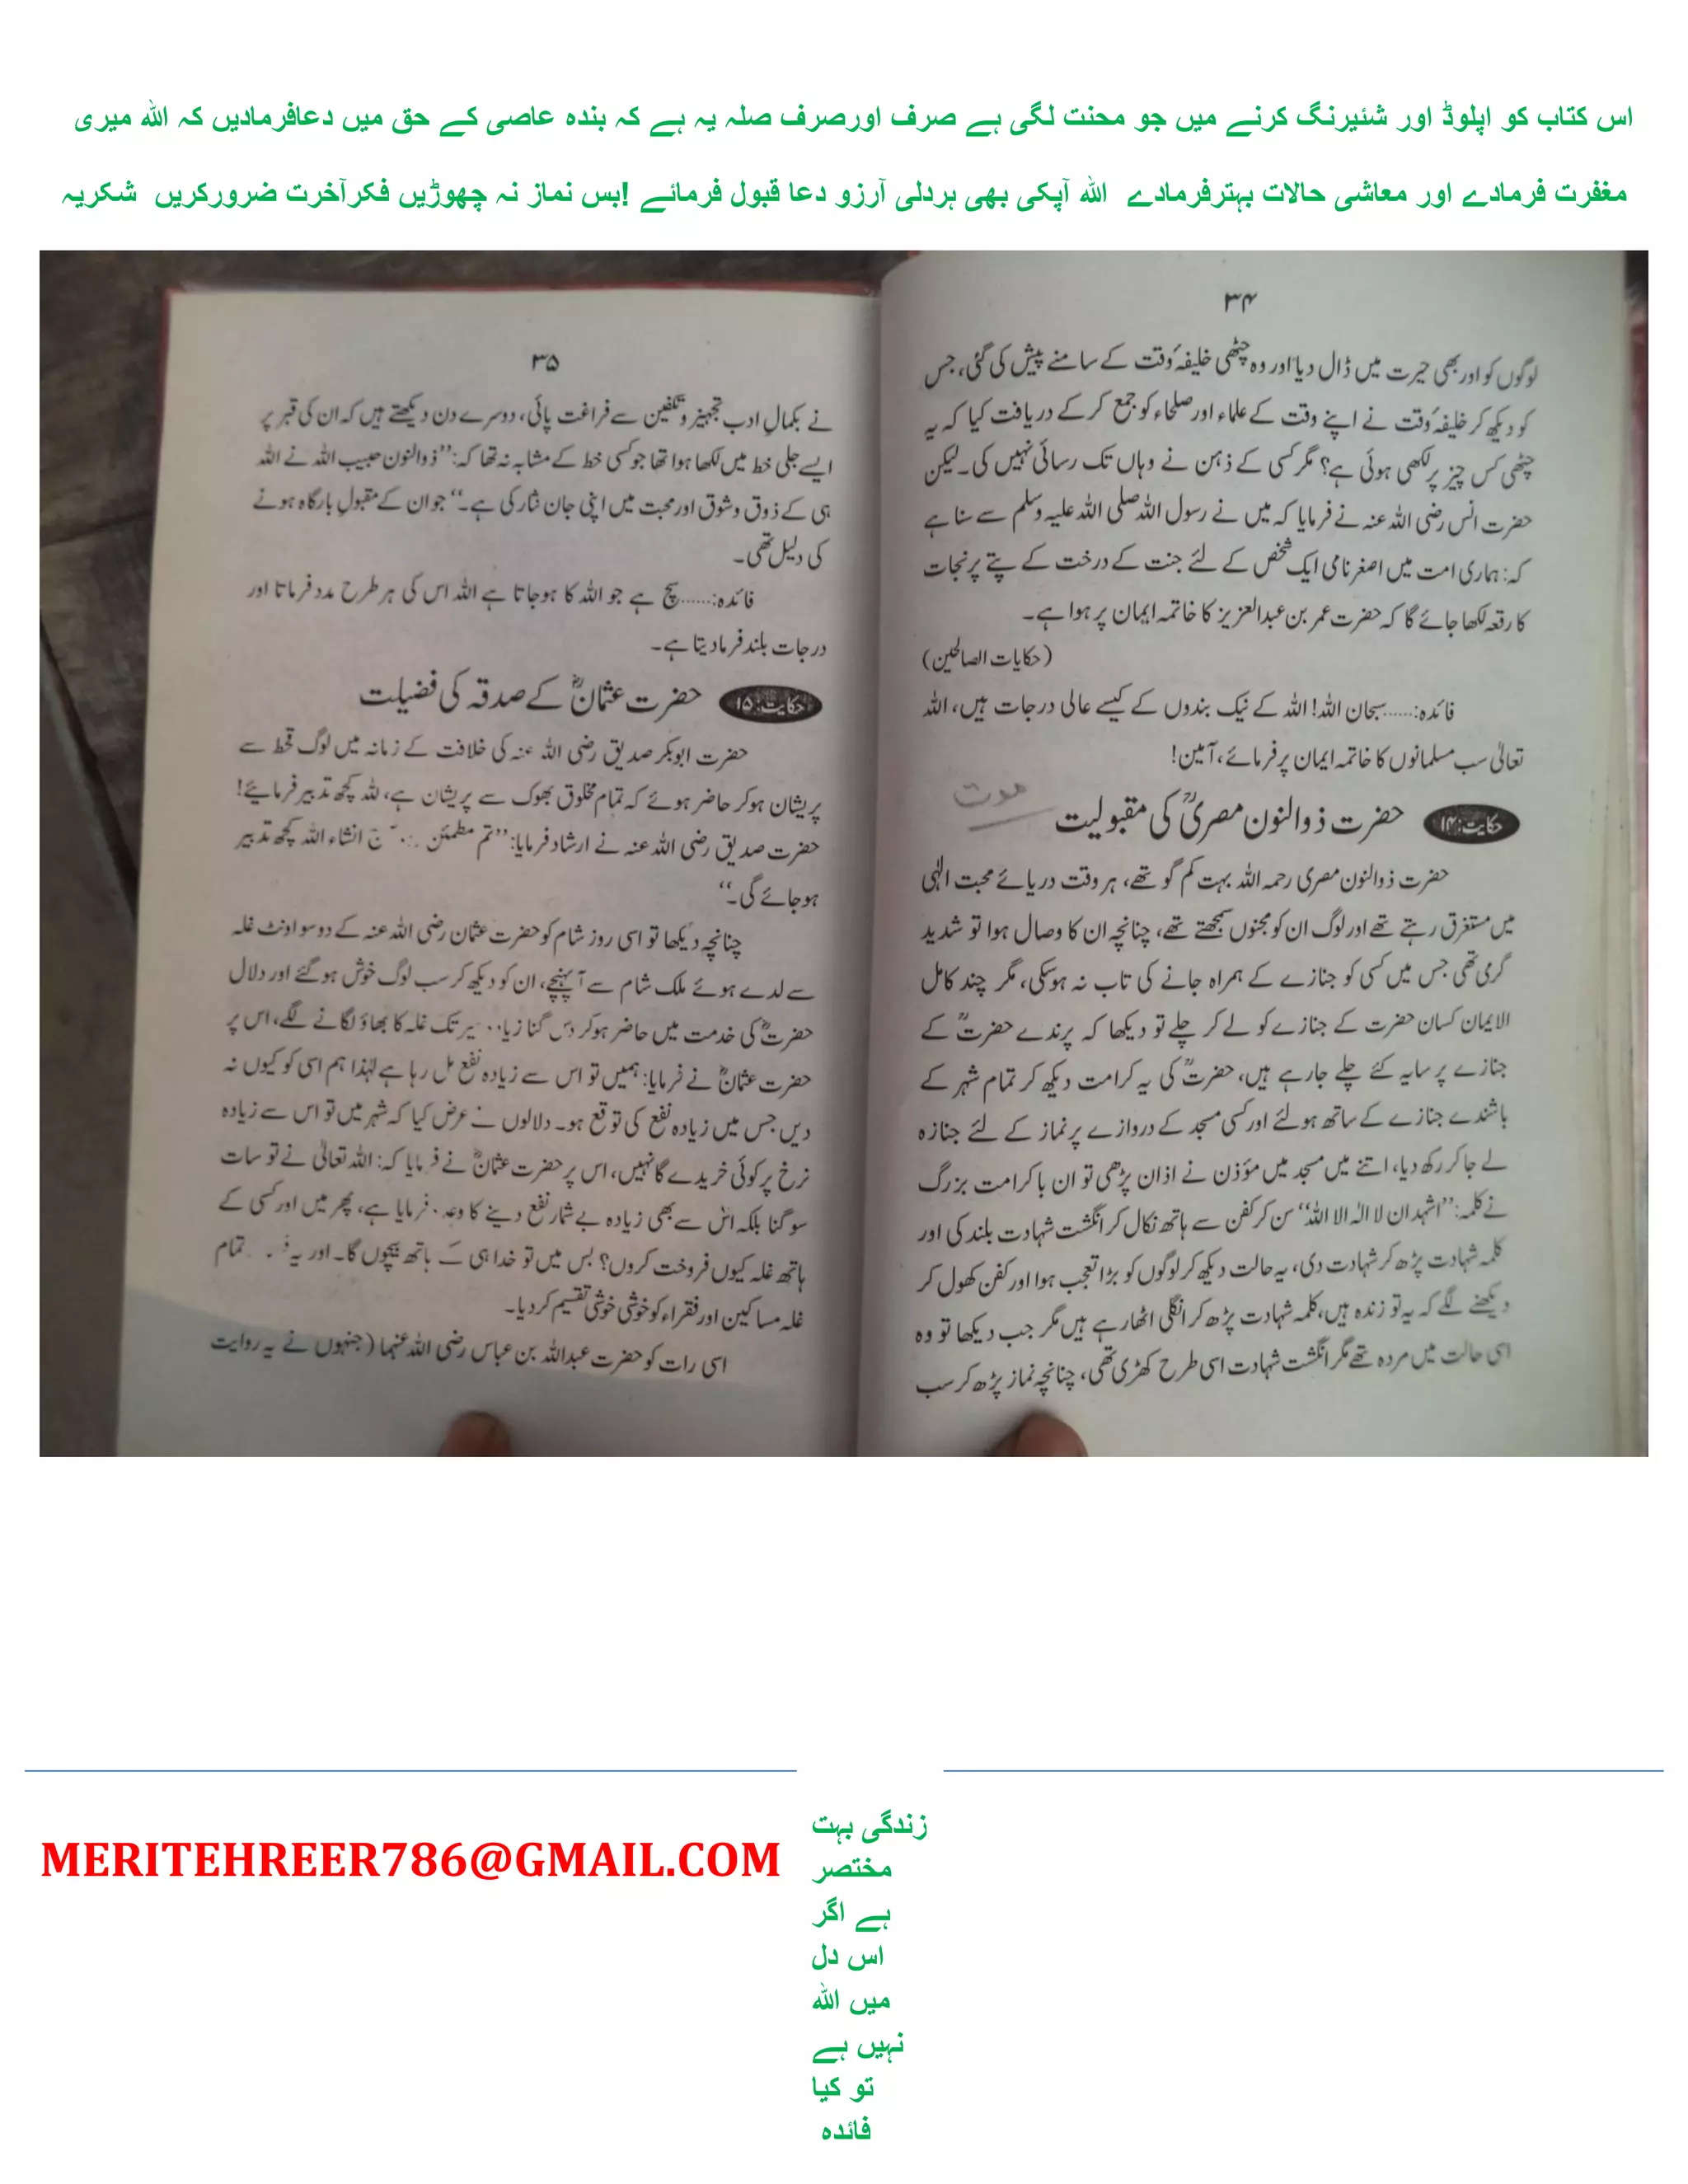 اس کتاب کو اپلوڈ اور شئیرنگ کرنے میں جو محنت لگی ہے صرف اورصرف صلہ یہ ہے کہ بندہ عاصی کے حق میں دعافرمادیں کہ اللہ میری
مغفرت فرمادے اور معاشی حالات بہترفرمادے اللہ آپکی بھی ہردلی آرزو دعا قبول فرمائے !بس نماز نہ چھوڑیں فکرآخرت ضرورکریں شکریہ
۳۴
لوگوں کو اور بھی حیرت میں ڈال دیا اور وہ چٹھی خلیفۂ وقت کے سامنے پیش کی گئی، جس
کو دیکھ کر خلیفۂ وقت نے اپنے وقت کے علماء اور صلحاء کو جمع کر کے دریافت کیا کہ یہ
چٹھی کس چیز پر لکھی ہوئی ہے؟ مگر کسی کے ذہن نے وہاں تک رسائی نہیں کی۔ لیکن
حضرت انس رضی اللہ عنہ نے فرمایا کہ میں نے رسول اللہ صلی اللہ علیہ وسلم سے سنا ہے
کہ: ہماری امت میں اصغر نامی ایک شخص کے لئے جنت کے درخت کے پتے پر نجات
کا رقعہ لکھا جائے گا کہ حضرت عمر بن عبدالعزیز کا خاتمہ ایمان پر ہوا ہے۔
(حکایات الصالحین)
فائدہ:......سبحان اللہ! اللہ کے نیک بندوں کے کیسے عالی درجات ہیں، اللہ
تعالیٰ سب مسلمانوں کا خاتمہ ایمان پر فرمائے، آمین!
موت
حکایت:۱۴ حضرت ذوالنون مصریؒ کی مقبولیت
حضرت ذوالنون مصری رحمہ اللہ بہت کم گو تھے، ہر وقت دریائے محبت الٰہی
میں مستغرق رہتے تھے اور لوگ ان کو مجنوں سمجھتے تھے، چنانچہ ان کا وصال ہوا تو شدید
گرمی تھی جس میں کسی کو جنازے کے ہمراہ جانے کی تاب نہ ہوسکی، مگر چند کامل
الایمان کسان حضرت کے جنازے کو لے کر چلے تو دیکھا کہ پرندے حضرتؒ کے
جنازے پر سایہ کئے چلے جارہے ہیں، حضرتؒ کی یہ کرامت دیکھ کر تمام شہر کے
باشندے جنازے کے ساتھ ہولئے اور کسی مسجد کے دروازے پر نماز کے لئے جنازہ
لے جاکر رکھ دیا، اتنے میں مسجد میں مؤذن نے اذان پڑھی تو ان باکرامت بزرگ
نے کلمہ: ”اشہد ان لا الہ الا اللہ“ سن کر کفن سے ہاتھ نکال کر انگشت شہادت بلند کی اور
کلمہ شہادت پڑھ کر شہادت دی، یہ حالت دیکھ کر لوگوں کو بڑا تعجب ہوا اور کفن کھول کر
دیکھنے لگے کہ یہ تو زندہ ہیں، کلمہ شہادت پڑھ کر انگلی اٹھارہے ہیں مگر جب دیکھا تو وہ
اسی حالت میں مردہ تھے مگر انگشت شہادت اسی طرح کھڑی تھی، چنانچہ نماز پڑھ کر سب
۳۵
نے بکمالِ ادب تجہیز و تکفین سے فراغت پائی، دوسرے دن دیکھتے ہیں کہ ان کی قبر پر
ایسے جلی خط میں لکھا ہوا تھا جو کسی خط کے مشابہ نہ تھا کہ: ”ذوالنون حبیب اللہ نے اللہ
ہی کے ذوق و شوق اور محبت میں اپنی جان نثار کی ہے۔“ جو ان کے مقبولِ بارگاہ ہونے
کی دلیل تھی۔
فائدہ:......سچ ہے جو اللہ کا ہوجاتا ہے اللہ اس کی ہر طرح مدد فرماتا اور
درجات بلند فرمادیتا ہے۔
حکایت:۱۵ حضرت عثمانؓ کے صدقہ کی فضیلت
حضرت ابوبکر صدیق رضی اللہ عنہ کی خلافت کے زمانہ میں لوگ قحط سے
پریشان ہوکر حاضر ہوئے کہ تمام مخلوق بھوک سے پریشان ہے، للہ کچھ تدبیر فرمائیے!
حضرت صدیق رضی اللہ عنہ نے ارشاد فرمایا: ”تم مطمئن انشاء اللہ کچھ تدبیر
ہوجائے گی۔“
چنانچہ دیکھا تو اسی روز شام کو حضرت عثمان رضی اللہ عنہ کے دو سو اونٹ غلہ
سے لدے ہوئے ملک شام سے آپہنچے، ان کو دیکھ کر سب لوگ خوش ہوگئے اور دلال
حضرتؓ کی خدمت میں حاضر ہوکر دس گنا تک غلہ کا بھاؤ لگانے لگے، اس پر
حضرت عثمانؓ نے فرمایا: ہمیں تو اس سے زیادہ نفع مل رہا ہے لہٰذا ہم اسی کو کیوں نہ
دیں جس میں زیادہ نفع کی توقع ہو۔ دلالوں نے عرض کیا کہ شہر میں تو اس سے زیادہ
نرخ پر کوئی خریدے گا نہیں، اس پر حضرت عثمانؓ نے فرمایا کہ: اللہ تعالیٰ نے تو سات
سو گنا بلکہ اس سے بھی زیادہ بے شمار نفع دینے کا وعدہ فرمایا ہے، پھر میں اور کسی کے
ہاتھ غلہ کیوں فروخت کروں؟ بس میں تو خدا ہی کے ہاتھ بیچوں گا۔ اور یہ تمام
غلہ مساکین اور فقراء کو خوشی خوشی تقسیم کردیا۔
اسی رات کو حضرت عبداللہ بن عباس رضی اللہ عنہما (جنہوں نے یہ روایت
MERITEHREER786@GMAIL.COM
زندگی بہت
مختصر
ہے اگر
اس دل
میں اللہ
نہیں ہے
تو کیا
فائدہ